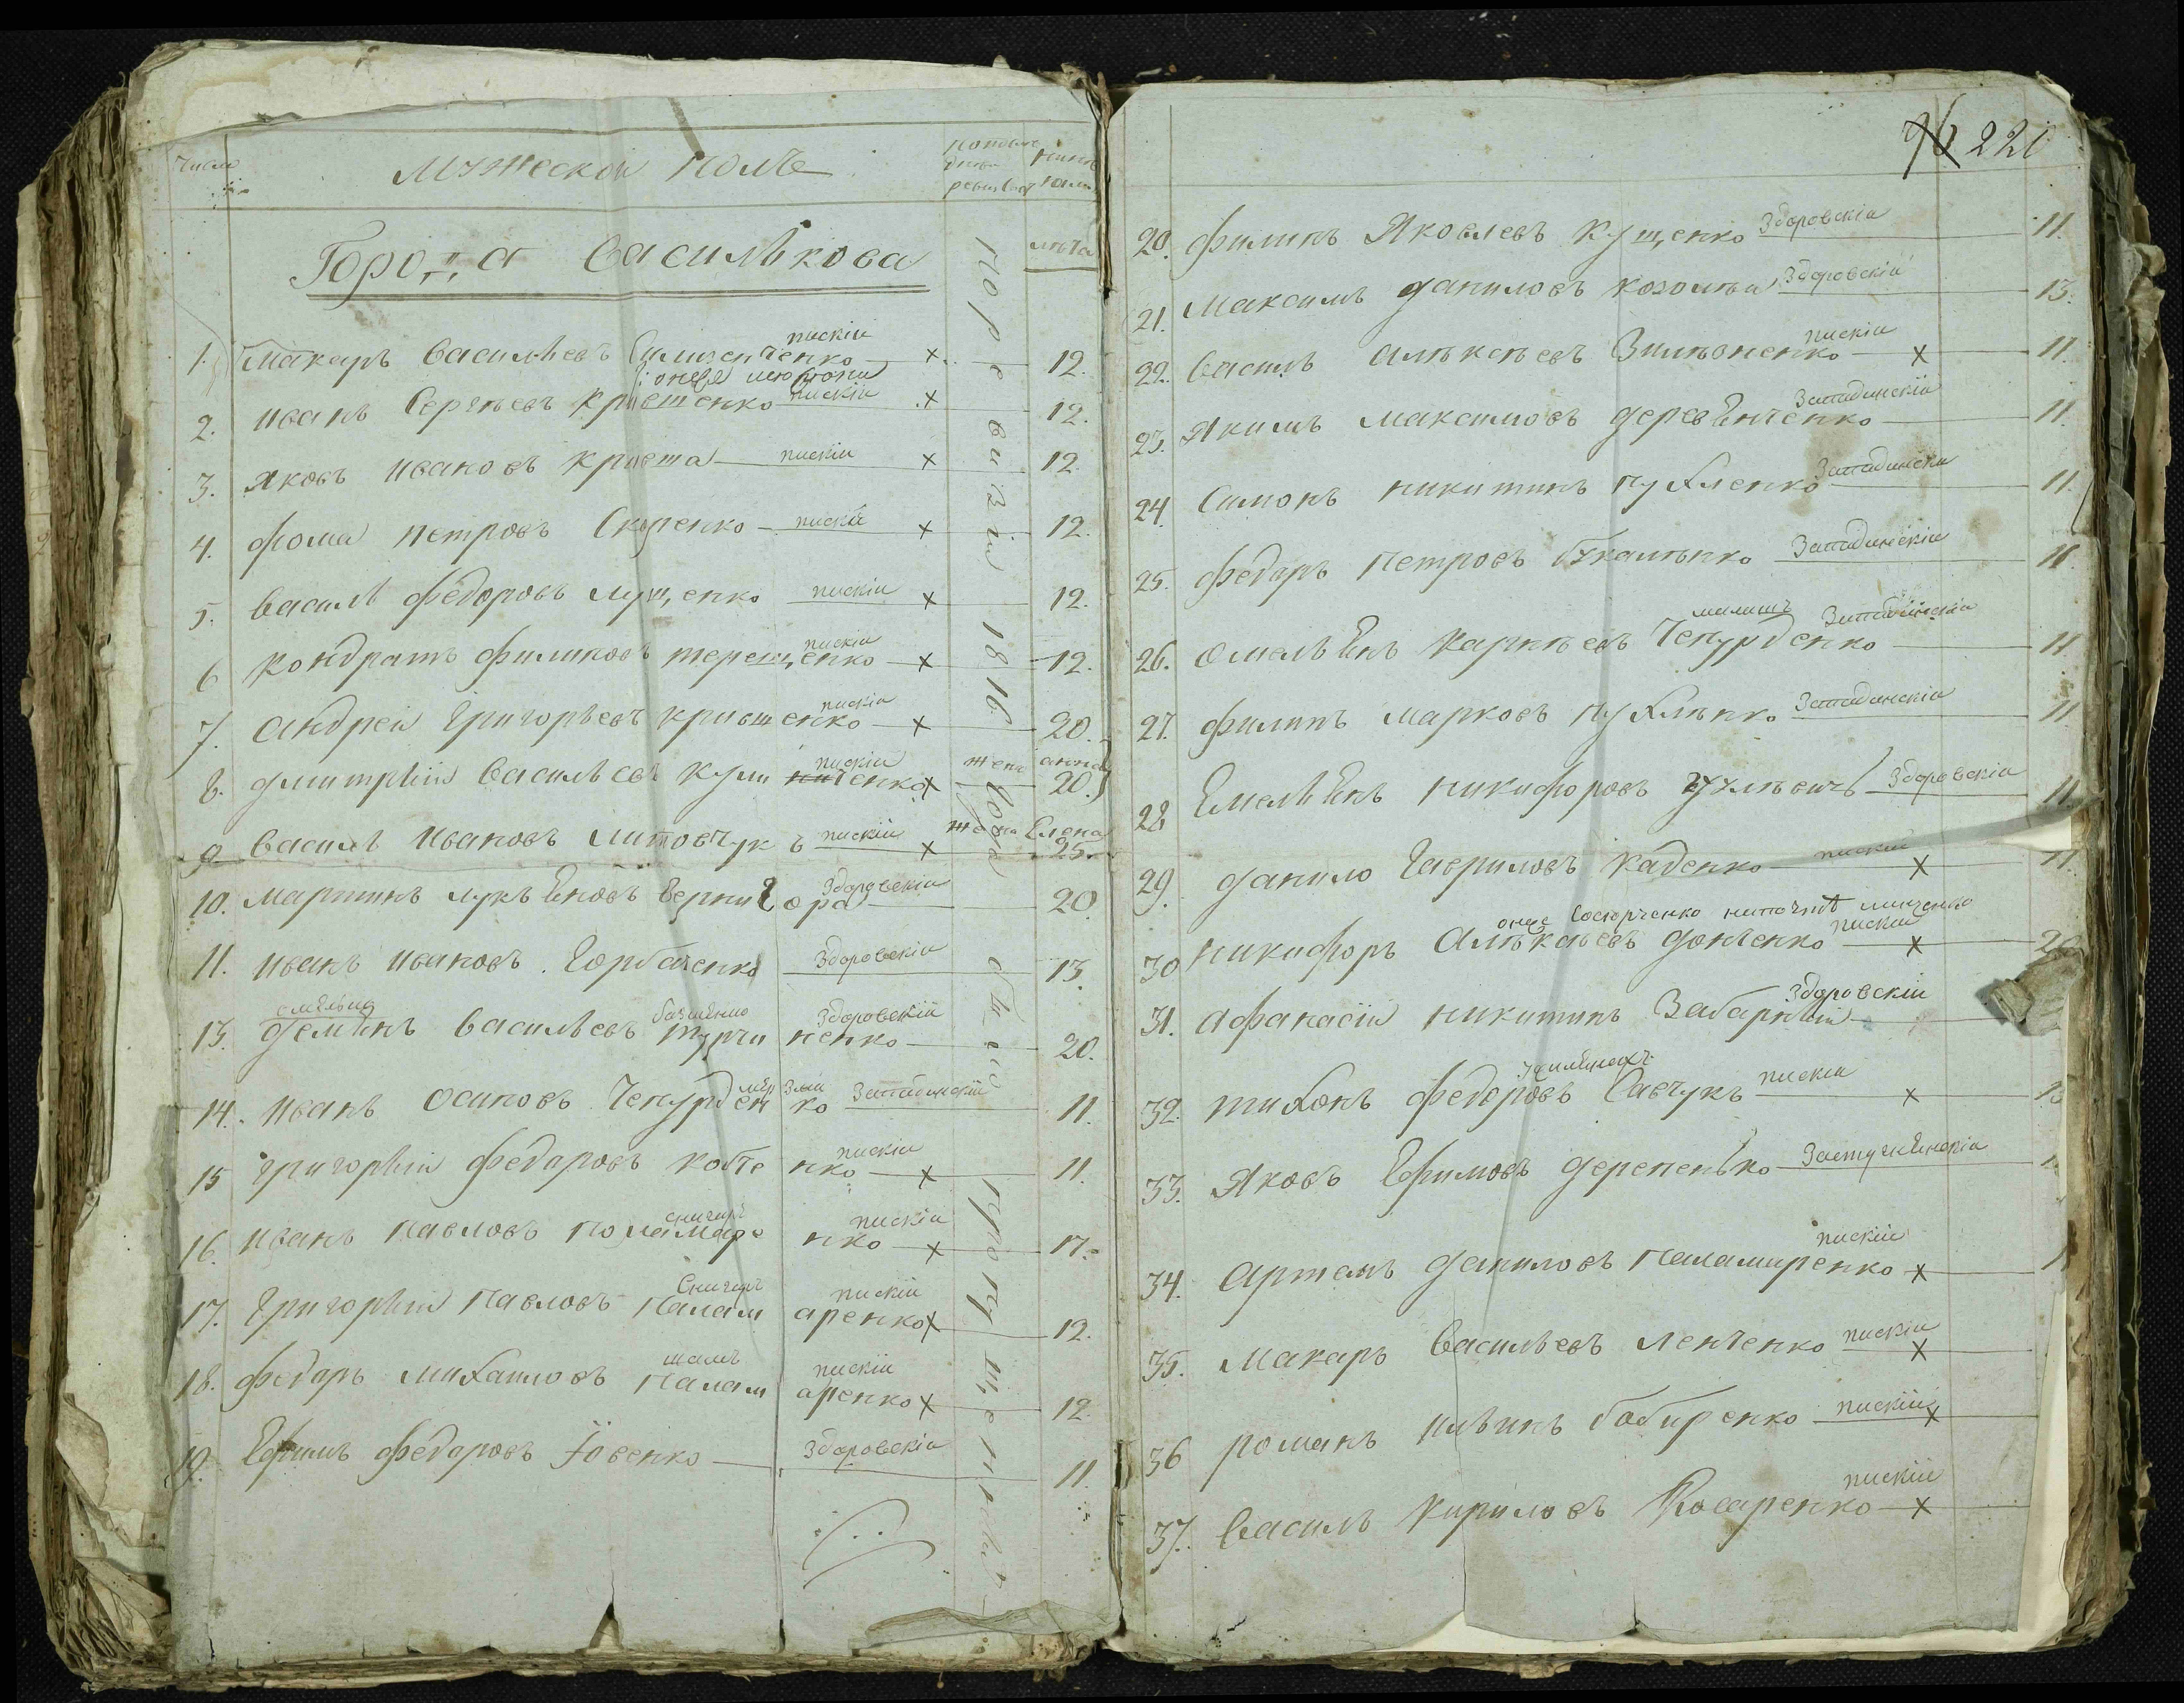 Число
Мужескои полъ
Города Василькова
лѣта
по ревизіи 1816 года обыо пропущенные
1. Макаръ Васильевъ пискіи × 12.
2. Иванъ Сергѣевъ Крившенко пискіи × 12.
3. Яковъ Ивановъ Кривша пискіи × 12
4. Фома Петровъ Скоренко пискіи × 12.
5. Василь Федоровъ Лущенко пискіи × 12.
6 Кондратъ Филиповъ Терещенко пискіи × 12.
7. Андреи Григорьевъ Крившенко пискіи × 20.
8. Дмитрьіи Васильевъ Кули ниченко пискіи × жена анна 20.
9 Василь Ивановъ Литовчукъ пискіи × жена Елена 25.
10. Мартинъ Лукъеновъ Чернигора Здоровскіи 20.
11. Иванъ Ивановъ Горбаченко Здоровскіи 13.
13. Демьянъ Васильевъ Турчиненко Здоровскіи 20.
14. Иванъ Осиповъ Чепурденко Западинскіи 11.
15 Григорьіи Федоровъ Кобченко пискіи × 11.
16. Иванъ Павловъ Паламаренко снигиръ пискіи × 17.
17. Григорьіи Павловъ Паламаренко Снигиръ пискіи × 12.
18. Федоръ Михаиловъ Паламаренко пискіи × 12.
19. Ефимъ Федоровъ Іовенко Здоровскіи 11.
96 220
20. Филипъ Яковлевъ Кущенко Здоровскіи 11.
21. Максимъ Даниловъ Здоровскіи 13.
22. Василь Алѣксѣевъ пискіи × 11.
23. Якимъ Максимовъ Деревенченко Западинскіи 11.
24 Симонъ Никитинъ Пухленко Западинскіи 11.
25. Федоръ Петровъ Западинскіи 11.
26. Омельенъ Карпѣевъ Чепурденко Западинскіи 11.
27. Филипъ Марковъ Пухлѣнко Западинскіи 11.
28 Емельенъ Никифоровъ Здоровскіи 11
29. Данило Гавриловъ Каденко пискіи × 11.
30 Никифоръ Алѣксѣевъ Донченко пискіи × 20
31. Афанасіи Никитинъ Забарныи Здоровскіи
32. Тихонъ Федоровъ Савчукъ пискіи ×
33. Яковъ Ефимовъ Дерепенько
34. Артемъ Даниловъ Паламаренко пискіи ×
35. Макаръ Васильевъ Ленченко пискіи ×
36 Романъ Ильинъ Бобиренко пискіи ×
37. Василь Кириловъ Косаренко пискіи ×